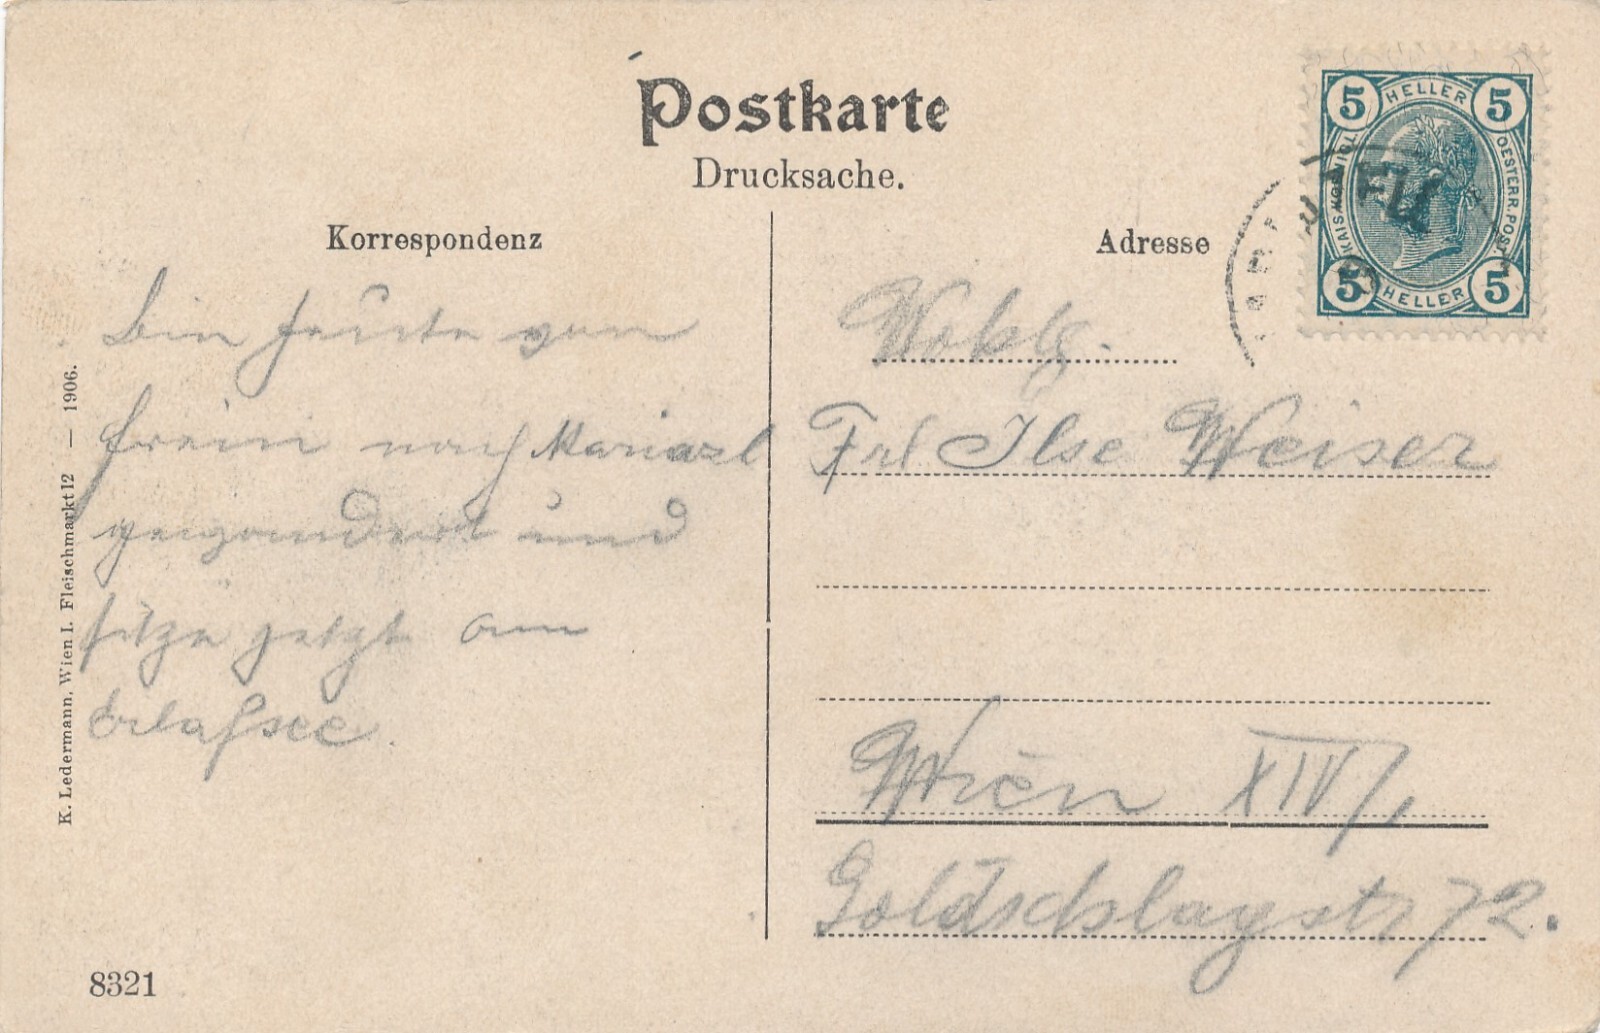 Postkarte
Drucksache.
Korrespondenz
Bin heute von
Frein nach Mariazl
gewandert und
sitze jetzt am
Erlafsee.
Adresse
Wohlg.
Frl Ilse Weiser
Wien XIV/1
Goldschlagstr 72.
K. Ledermann, Wien I. Fleischmarkt 12 — 1906.
8321
5 HELLER 5
KAIS. KÖNIGL.
OESTERR. POST.
5 HELLER 5